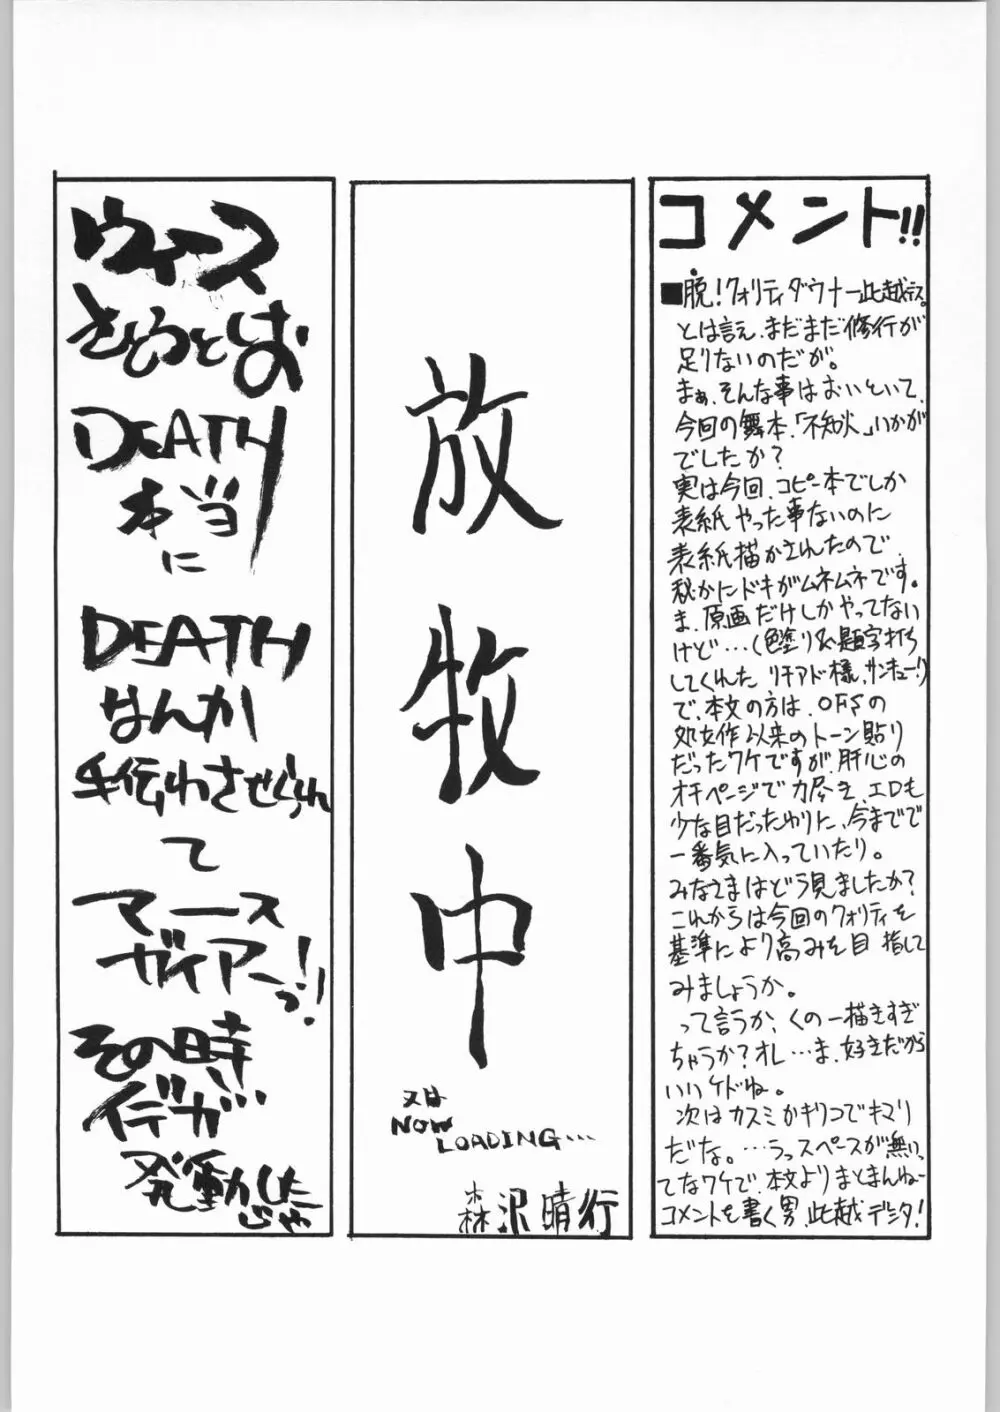 コメント!!
■脱！クォリティダウナー此越デス。
とは言え、まだまだ修行が
足りないのだが。
まぁ、そんな事はおいといて、
今回の舞本、「不知火」いかが
でしたか？
実は今回、コピー本でしか
表紙やった事ないのに
表紙描かされたので、
秘かにドキがムネムネです。
ま、原画だけしかやってない
けど…(色塗り&題字打ち
してくれた リチアド様、サンキュー!)
で、本文の方は、OFSの
処女作以来のトーン貼り
だったワケですが、肝心の
オチページで力尽き、エロも
少な目だったわりに、今までで
一番気に入っていたり。
みなさまはどう見ましたか？
これからは今回のクォリティを
基準により高みを目指して
みましょうか。
って言うか、くの一描きすぎ
ちゃうか？オレ…ま、好きだから
いいケドね。
次はカスミかギリコでキマリ
だな。…うっスペースが無いっ
てなワケで、本文よりまとまんねー
コメントを書く男、此越デシタ！
放牧中
又は
NOW
LOADING…
森沢晴行
ウィース
さとうとしお
DEATH
本当
に
DEATH
なんか
手伝わさせられ
て
マース
ガイアーっ!!
その時
イデが…
発動した
じゃ